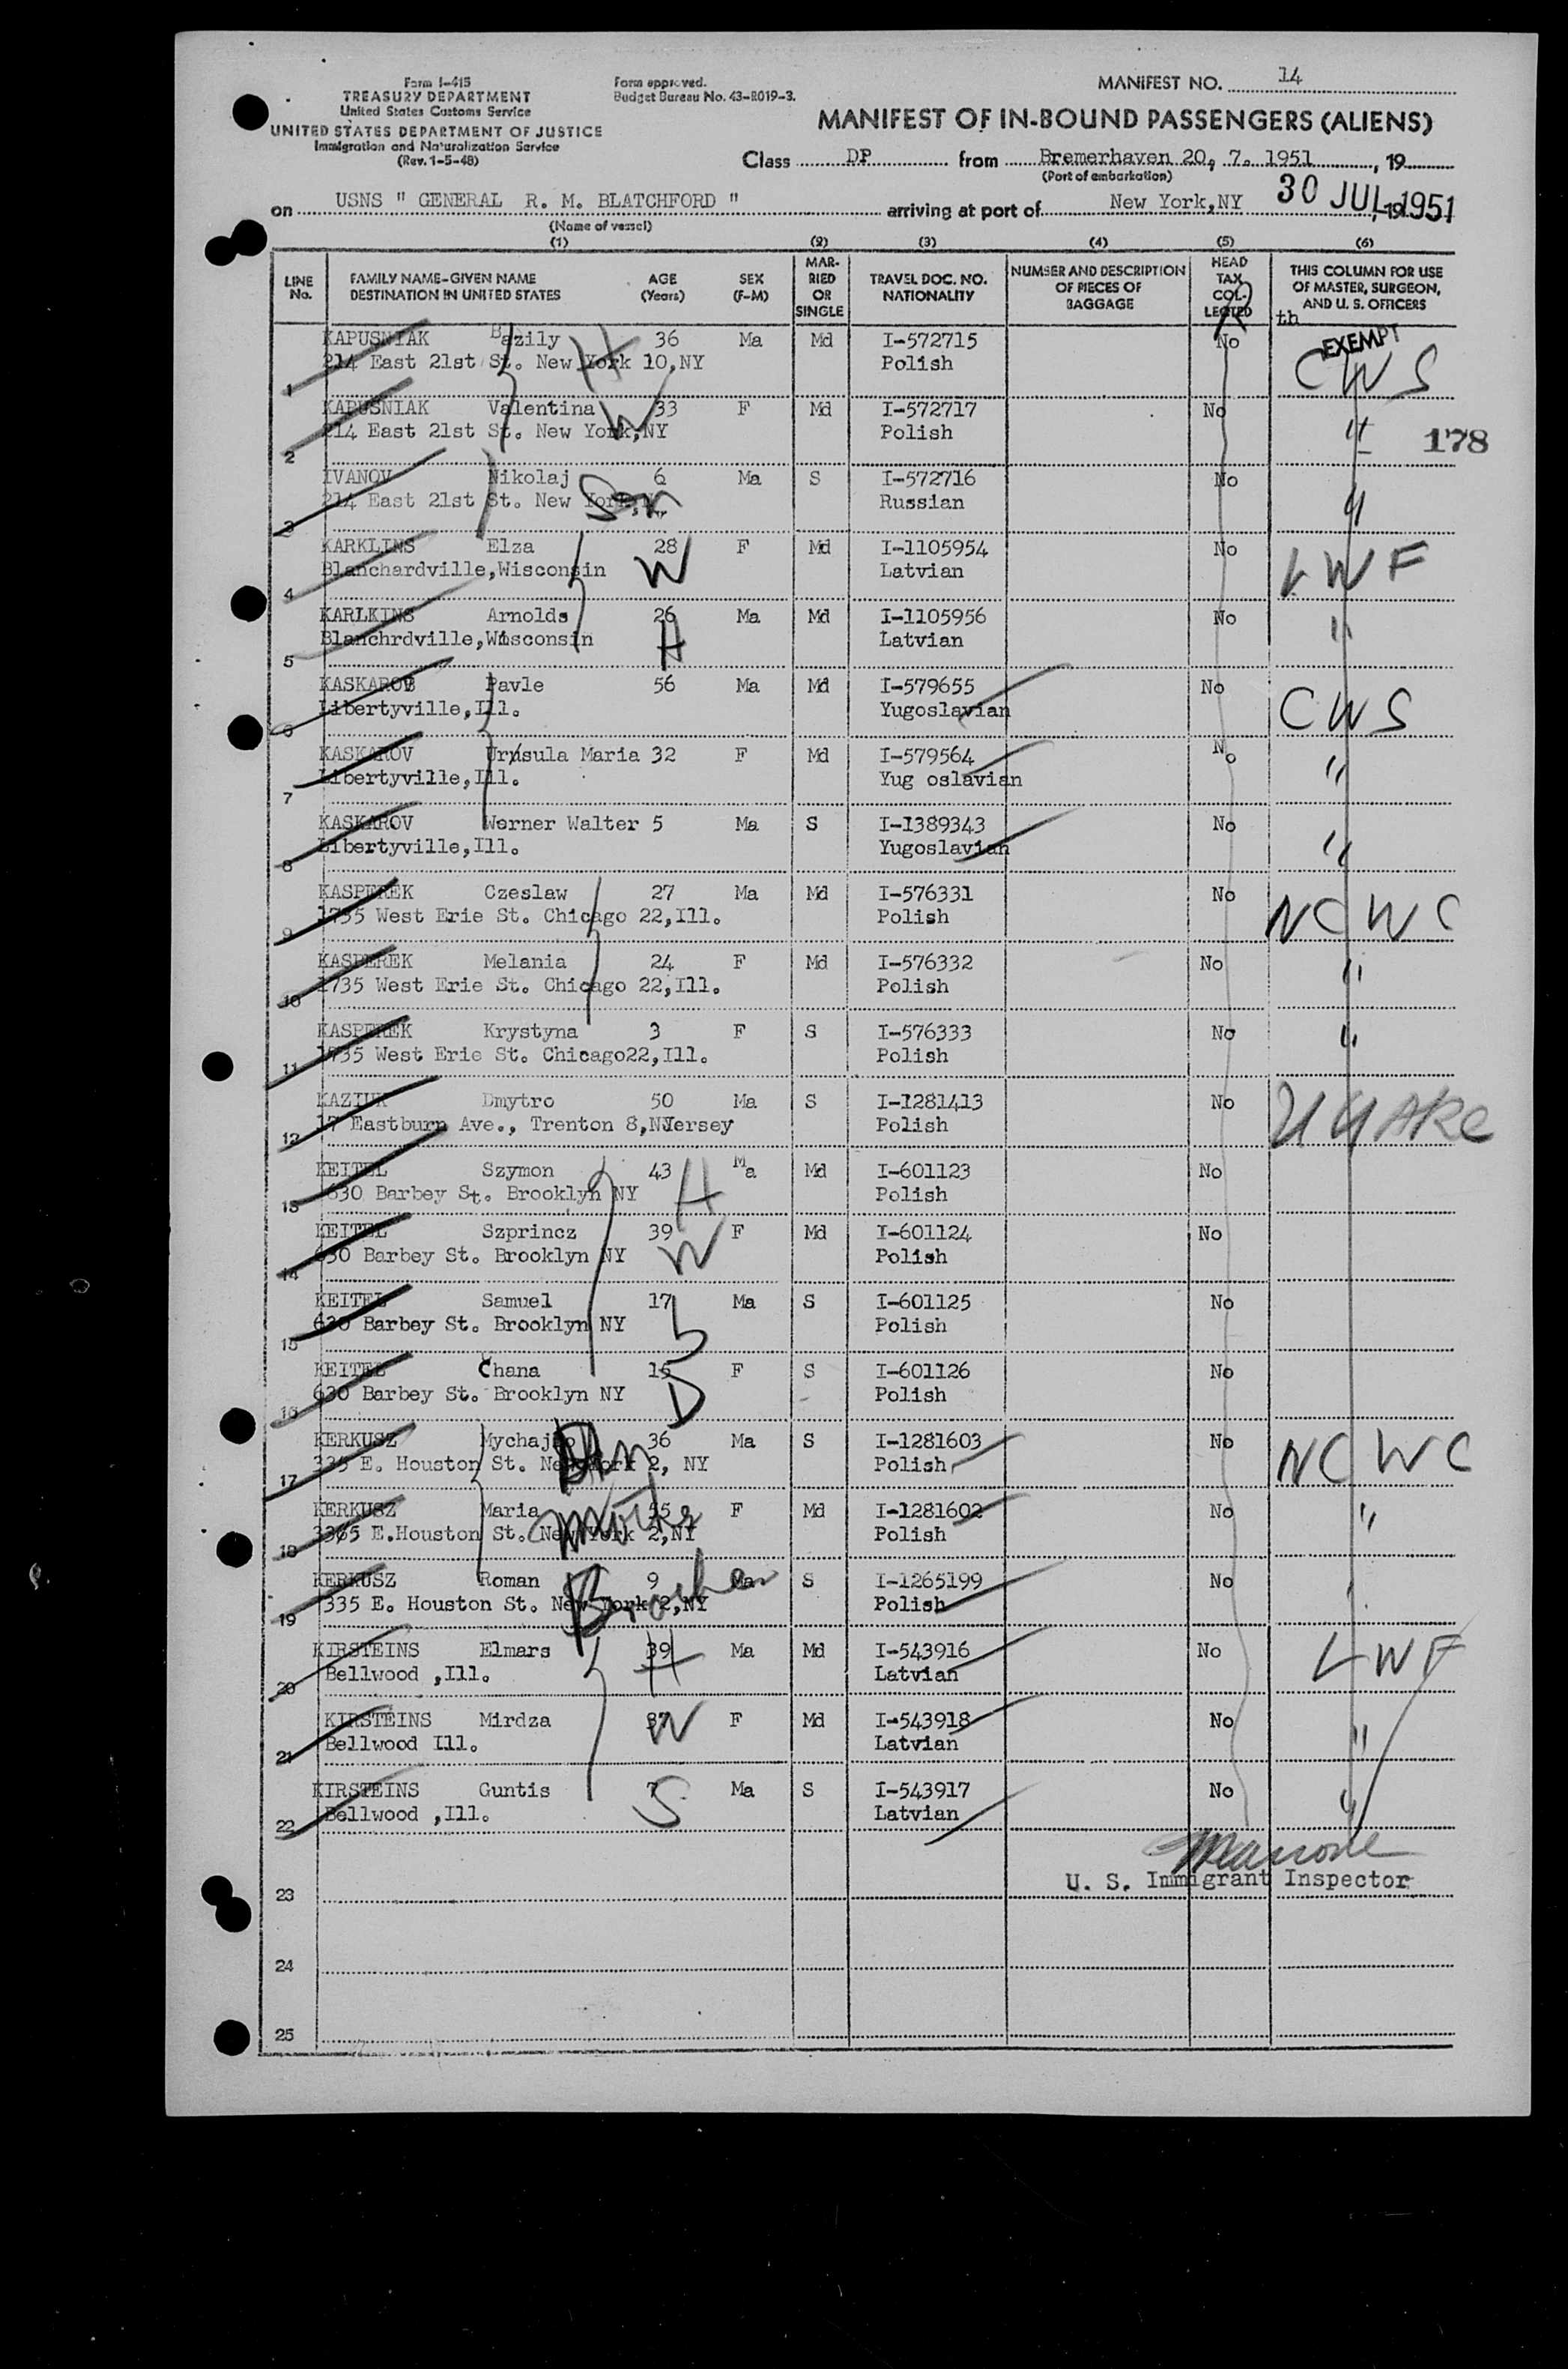 Form I-415
TREASURY DEPARTMENT
United States Customs Service
UNITED STATES DEPARTMENT OF JUSTICE
Immigration and Naturalization Service
(Rev. 1-5-48)
Form approved.
Budget Bureau No. 43-R019-3.
MANIFEST NO. 14
MANIFEST OF IN-BOUND PASSENGERS (ALIENS)
Class DP from Bremerhaven 20. 7. 1951, 19
(Port of embarkation)
on USNS " GENERAL R. M. BLATCHFORD " arriving at port of New York,NY 30 JUL 1951
(Name of vessel)
(1) (2) (3) (4) (5) (6)
LINE No.
FAMILY NAME-GIVEN NAME DESTINATION IN UNITED STATES
AGE (Years)
SEX (F-M)
MAR-RIED OR SINGLE
TRAVEL DOC. NO. NATIONALITY
NUMBER AND DESCRIPTION OF PIECES OF BAGGAGE
HEAD TAX COL-LECTED
THIS COLUMN FOR USE OF MASTER, SURGEON, AND U. S. OFFICERS
th
EXEMPT
KAPUSNIAK Bazily 36 Ma Md I-572715 No CWS
1 214 East 21st St. New York 10,NY H Polish
KAPUSNIAK Valentina 33 F Md I-572717 No "
2 214 East 21st St. New York,NY W Polish 178
IVANOV Nikolaj 6 Ma S I-572716 No "
3 214 East 21st St. New York, Son Russian
KARKLINS Elza 28 F Md I-1105954 No LWF
4 Blanchardville,Wisconsin W Latvian
KARLKINS Arnolds 26 Ma Md I-1105956 No "
5 Blanchrdville,Wisconsin H Latvian
KASKAROV Pavle 56 Ma Md I-579655 No CWS
6 Libertyville,Ill. Yugoslavian
KASKAROV Ursula Maria 32 F Md I-579564 No "
7 Libertyville,Ill. Yug oslavian
KASKAROV Werner Walter 5 Ma S I-1389343 No "
8 Libertyville,Ill. Yugoslavian
KASPEREK Czeslaw 27 Ma Md I-576331 No NCWC
9 1735 West Erie St. Chicago 22,Ill. Polish
KASPEREK Melania 24 F Md I-576332 No "
10 1735 West Erie St. Chicago 22,Ill. Polish
KASPEREK Krystyna 3 F S I-576333 No "
11 1735 West Erie St. Chicago22,Ill. Polish
KAZIUK Dmytro 50 Ma S I-1281413 No
12 17 Eastburn Ave., Trenton 8,NJersey Polish
KEITEL Szymon 43 Ma Md I-601123 No
13 630 Barbey St. Brooklyn NY H Polish
KEITEL Szprincz 39 F Md I-601124 No
14 630 Barbey St. Brooklyn NY W Polish
KEITEL Samuel 17 Ma S I-601125 No
15 630 Barbey St. Brooklyn NY S Polish
KEITEL Chana 15 F S I-601126 No
16 630 Barbey St. Brooklyn NY D Polish
KERKUSZ Mychajlo 36 Ma S I-1281603 No NCWC
17 335 E. Houston St. New York 2, NY Polish
KERKUSZ Maria 55 F Md I-1281602 No "
18 3365 E.Houston St. New York 2,NY Polish
KERKUSZ Roman 9 Ma S I-1265199 No "
19 335 E. Houston St. New York 2,NY Brother Polish
KIRSTEINS Elmars 39 Ma Md I-543916 No LWF
20 Bellwood ,Ill. H Latvian
KIRSTEINS Mirdza 37 F Md I-543918 No "
21 Bellwood Ill. W Latvian
KIRSTEINS Guntis 7 Ma S I-543917 No "
22 Bellwood ,Ill. S Latvian
U. S. Immigrant Inspector
23
24
25